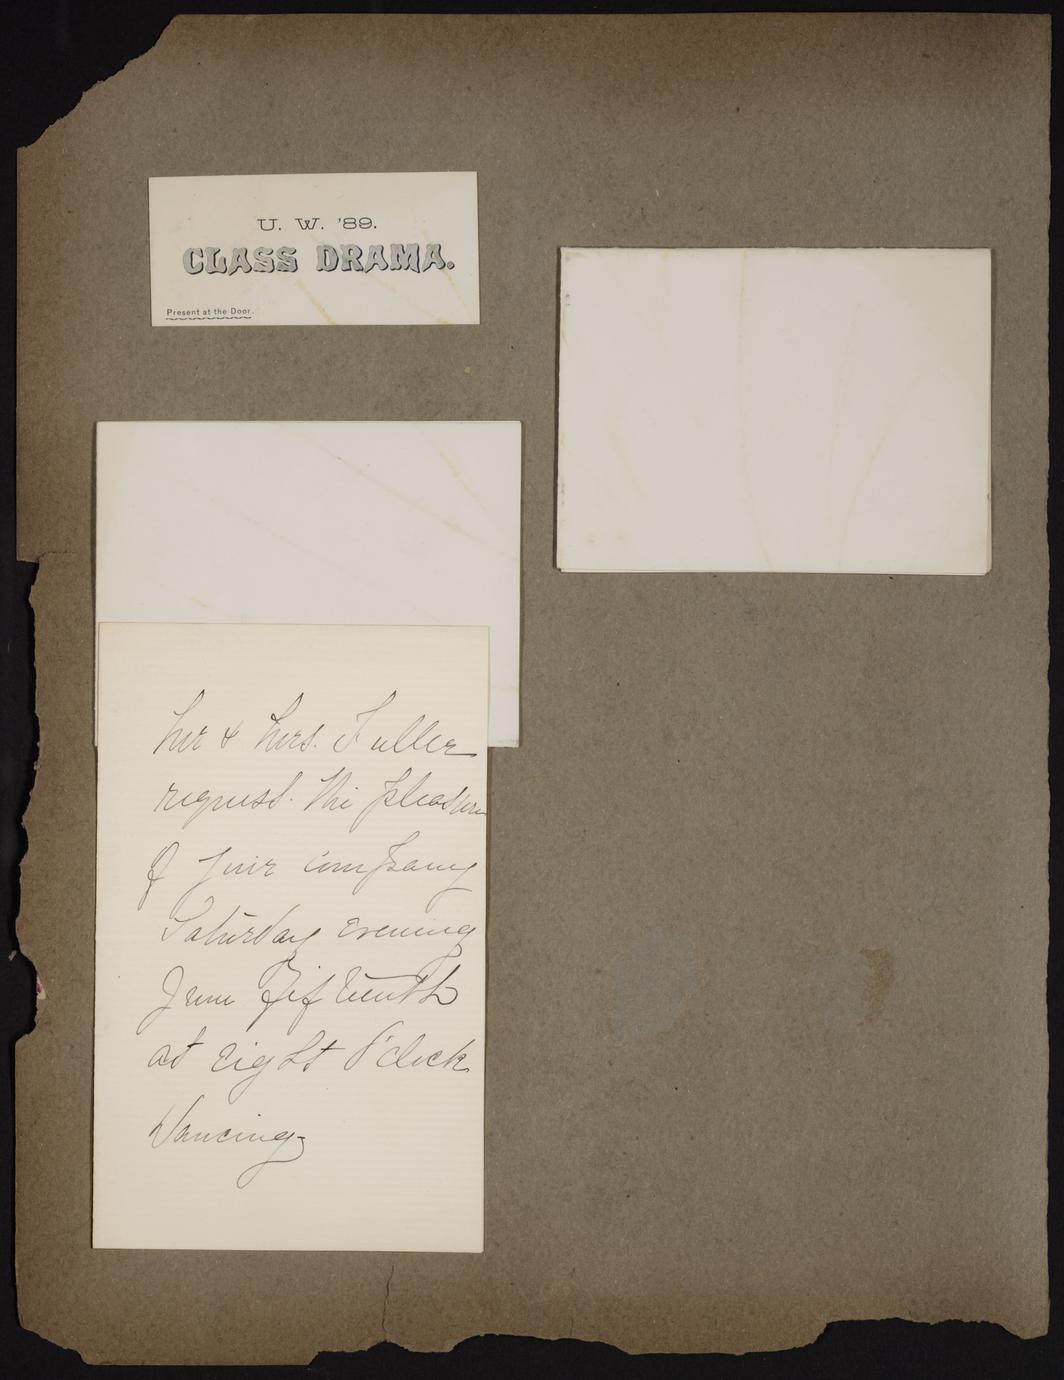 U. W. '89.
CLASS DRAMA.
Present at the Door.
Mr & Mrs. Fuller
request the pleasure
of your company
Saturday evening
June Fifteenth
at eight O'clock
Dancing